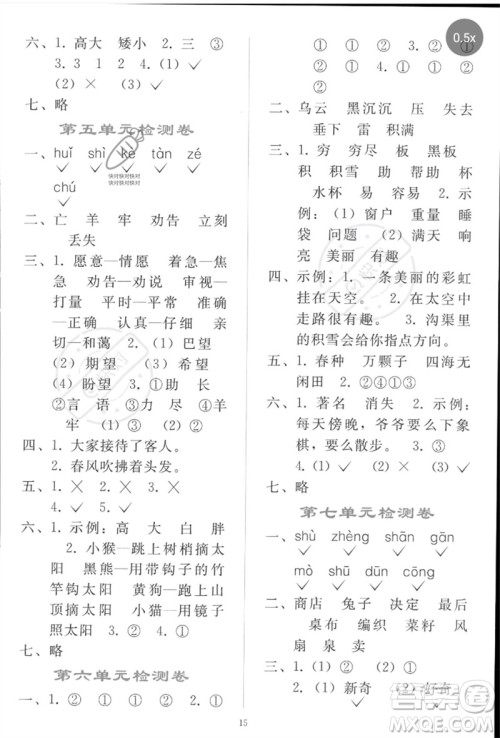 六、1. 高大 矮小 2. 三 ③
3. 3 1 2 4. (1) ✓
(2) ×
七、略
第五单元检测卷
一、huǐ shì ke tàn zé
chú
快对快对快对
快对快对快对
二、亡 羊 牢 劝告 立刻
丢失
三、1. 愿意—情愿 着急—焦
急 劝告—劝说 审视—
打量 平时—平常 准确
—正确 认真—仔细 亲
切—和蔼 2. (1) 巴望
(2) 期望 (3) 希望
(4) 盼望 3. ①助 长
②言 语 ③乌 羊
牢 ③ ① ②
四、1. 大家接待了客人。
2. 春风吹拂着头发。
五、1. × 2. × 3. ×
4. ✓
六、1. 示例：高 大 白 胖
2. 小猴—跳上树梢摘太
阳 黑熊—用带钩子的竹
竿钩太阳 黄狗—爬上山
顶摘太阳 小猫—用镜子
照太阳 3. 2 4. ①
七、略
第六单元检测卷
一、① ② ① ② 2. ①
① ② ① 3. ②
② ①
二、乌云 黑沉沉 压 失去
垂下 雷 积满
三、1. 穷 穷尽 板 黑板
积 积雪 助 帮助 杯
水杯 易 容易 2. 示
例：(1) 窗户 重量 睡
袋 问题 (2) 满天 响
亮 美丽 有趣
四、示例：1. 一条美丽的彩虹
挂在天空。 2. 在太空中
走路很有趣。 3. 沟渠里
的积雪会给你指点方向。
五、1. 春种 万颗子 四海无
闲田 2. ① ④ ② ③
六、1. 著名 消失 2. 示例：
每天傍晚，爷爷要么下象
棋，要么散步。 3. ③
4. (1) ✓ (2) ✓
七、略
第七单元检测卷
一、shù zhèng shān gān
mò shū dūn cōng
二、商店 兔子 决定 最后
桌布 编织 菜籽 风
扇 泉 卖
三、1. (1) 新奇 (2) 好奇
15
0.5x
答案圈
MXQE.COM